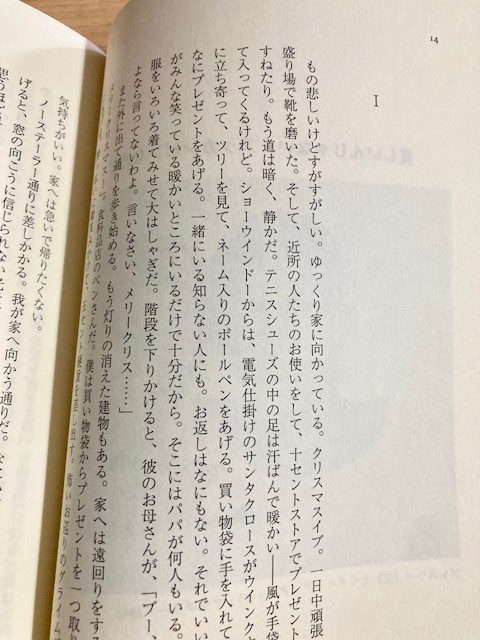 14
I
もの悲しいけどすがすがしい。ゆっくり家に向かっている。クリスマスイブ。一日中頑張
盛り場で靴を磨いた。そして、近所の人たちのお使いをして、十セントストアでプレゼント
すねたり。もう道は暗く、静かだ。テニスシューズの中の足は汗ばんで暖かい——風が手袋
て入ってくるけれど。ショーウインドーからは、電気仕掛けのサンタクロースがウインク
に立ち寄って、ツリーを見て、ネーム入りのボールペンをあげる。買い物袋に手を入れて
なにプレゼントをあげる。一緒にいる知らない人にも。お返しはなにもない。それでいい
がみんな笑っている暖かいところにいるだけで十分だから。そこにはパパが何人もいる。
服をいろいろ着てみせて大はしゃぎだ。階段を下りかけると、彼のお母さんが、「ブー、
よなら言ってないわよ。言いなさい、メリークリス……」
また外に出て通りを歩き始める。もう灯りの消えた建物もある。家へは遠回りをする
メリークリスマス！」食料品店のベンさんだ。僕は買い物袋からプレゼントを一つ取り
気持ちがいい。家へは急いで帰りたくない。
ノーステーラー通りに差しかかる。我が家へ向かう通りだ。
げると、窓の向こうに信じられない
思うほど